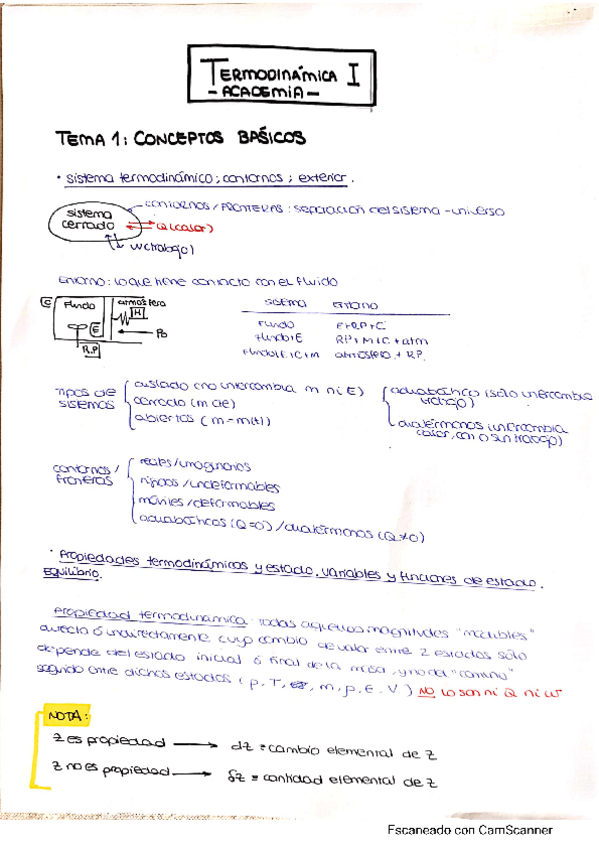 TERMODINÁMICA I
- ACADEMIA -
TEMA 1: CONCEPTOS BÁSICOS
· sistema termodinámico; contornos; exterior.
CONTORNOS / FRONTERAS: separación del sistema - universo
sistema
cerrado
Q (calor)
W (trabajo)
Entorno: lo que tiene contacto con el fluido
C Fluido atmósfera
M
E
Po
R.P
sistema entorno
Fluido E+R.P+C
Fluido+E RP+M+C+atm
Fluido+E+C+M atmósfera + RP.
tipos de
sistemas
aislado (no intercambia m ni E)
cerrado (m cte)
abiertos (m = m(t))
adiabático (sólo intercambia
trabajo)
diatérmanos (intercambia
calor, con o sin trabajo)
contornos /
fronteras
reales / imaginarios
rígidos / indeformables
móviles / deformables
adiabáticos (Q=0) / diatérmanos (Q≠0)
· Propiedades termodinámicas y estado. variables y funciones de estado.
Equilibrio.
Propiedad termodinámica: todas aquellas magnitudes "medibles"
directa ó indirectamente cuyo cambio de valor entre 2 estados sólo
depende del estado inicial ó final de la misma, y no del "camino"
seguido entre dichos estados (p, T, m, ρ, E, V) NO lo son ni Q ni W
NOTA:
z es propiedad → dz = cambio elemental de z
z no es propiedad → δz = cantidad elemental de z
Escaneado con CamScanner